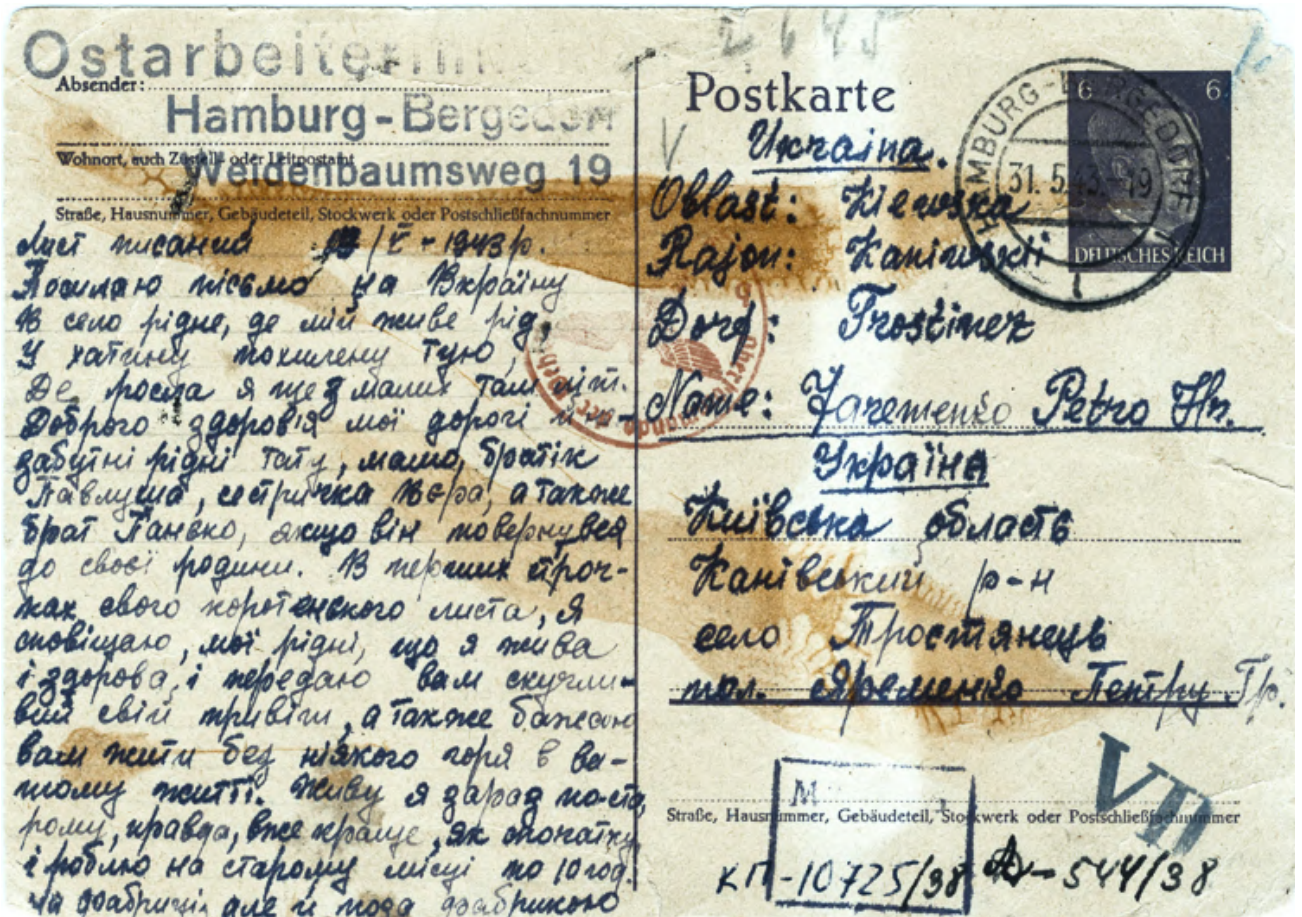 Ostarbeiter
Absender:
Hamburg-Bergedorf
Wohnort, auch Zustell- oder Leitpostamt
Weidenbaumsweg 19
Straße, Hausnummer, Gebäudeteil, Stockwerk oder Postschließfachnummer
Лист писаний /V - 1943 р.
Посилаю письмо на Вкраїну
В село рідне, де мій живе рід,
У хатину похилену тую,
Де росла я ще з малих там літ.
Доброго здоров'я мої дорогі й не-
забутні рідні тату, мамо, братік
Павлуша, сестричка Вєра, а також
брат Панько, якщо він повернувся
до своєї родини. В перших строч-
ках свого коротенского листа, я
сповіщаю, мої рідні, що я жива
і здорова, і передаю вам скучли-
вий свій привіт, а також бажаю
вам жити без ніякого горя в ва-
шому житті. Живу я зараз по-ста
рому, правда, вже краще, як спочатку
і роблю на старому місці по 10 год.
на фабриці, але й поза фабрикою
2645
Postkarte
HAMBURG-BERGEDORF
31.5.43.-19
6 6
DEUTSCHES REICH
V
Ukraina.
Oblast: Kiewska
Rajon: Kaniwskii
Dorf: Trostinez
Name: Jaremenko Petro Hr.
Україна
Київська область
Канівський р-н
село Тростянець
пол. Яременко Петру Гр.
VII
М
Straße, Hausnummer, Gebäudeteil, Stockwerk oder Postschließfachnummer
КП-10725/38 А-544/38